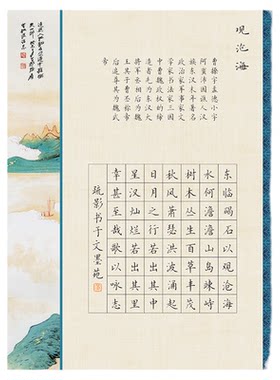 观沧海
曹操字孟德小字
阿瞒沛国谯人汉
族东汉末年著名
政治家军事家文
学家书法家三国
中曹魏政权的缔
造者先为东汉大
将军丞相后为魏
王其子曹丕称帝
后追尊其为魏武
帝
东临碣石以观沧海
水何澹澹山岛竦峙
树木丛生百草丰茂
秋风萧瑟洪波涌起
日月之行若出其中
星汉灿烂若出其里
幸甚至哉歌以咏志
疏影书于文墨苑